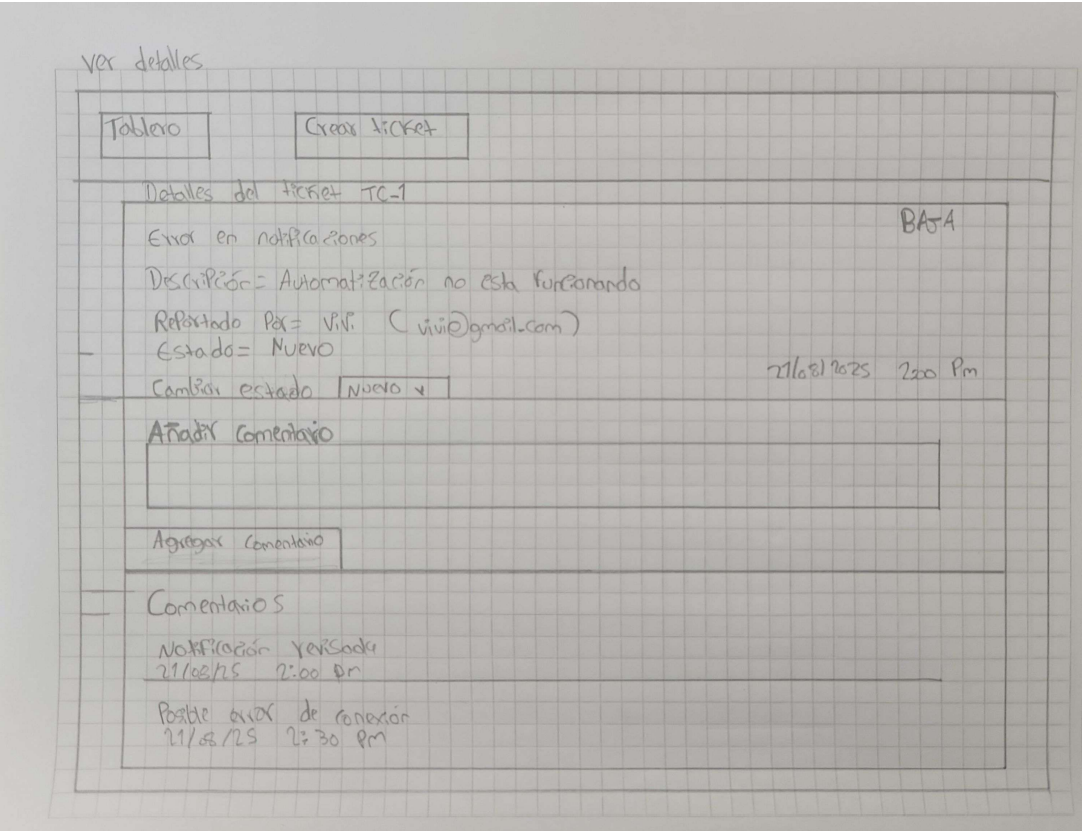 ver detalles
Tablero
Crear ticket
Detalles del ticket TC-1
BAJA
Error en notificaciones
Descripción= Automatización no esta funcionando
Reportado Por= Vivi (vivi@gmail.com)
Estado= Nuevo
21/08/2025 2:00 Pm
Cambiar estado Nuevo v
Añadir comentario
Agregar comentario
Comentarios
Notificación revisada
21/08/25 2:00 Pm
Posible error de conexión
21/08/25 2:30 Pm